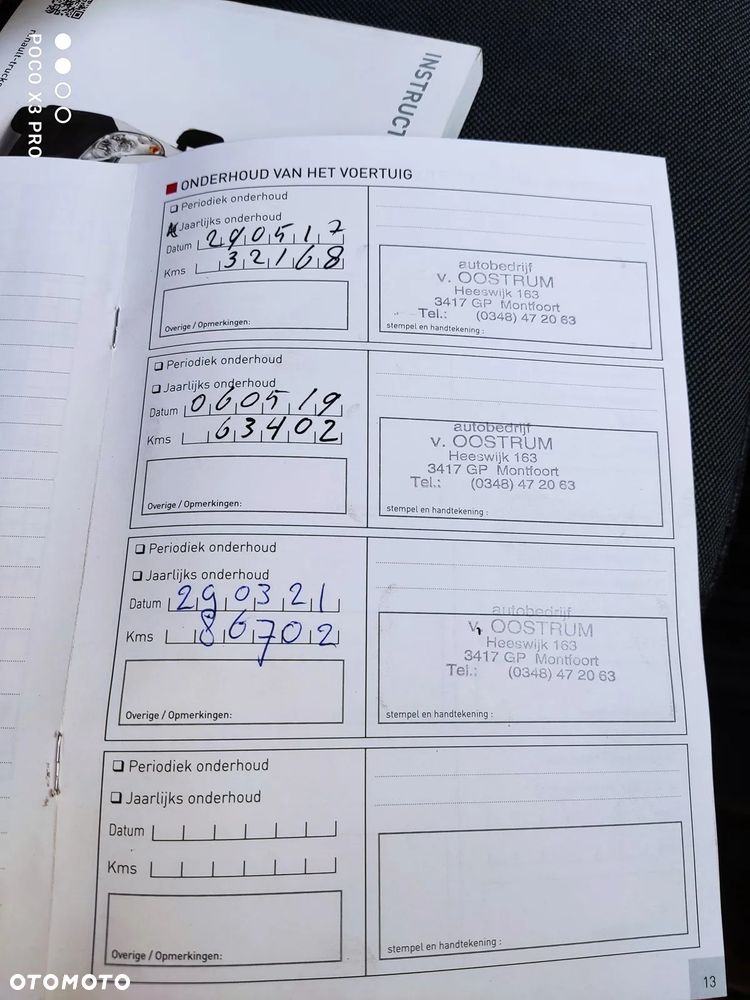 POCO X3 PRO
INSTRUCT
ONDERHOUD VAN HET VOERTUIG
Periodiek onderhoud
Jaarlijks onderhoud
Datum 290517
Kms 32168
Overige / Opmerkingen:
autobedrijf
v. OOSTRUM
Heeswijk 163
3417 GP Montfoort
Tel.: (0348) 47 20 63
stempel en handtekening :
Periodiek onderhoud
Jaarlijks onderhoud
Datum 060519
Kms 63402
Overige / Opmerkingen:
autobedrijf
v. OOSTRUM
Heeswijk 163
3417 GP Montfoort
Tel.: (0348) 47 20 63
stempel en handtekening :
Periodiek onderhoud
Jaarlijks onderhoud
Datum 290321
Kms 86702
Overige / Opmerkingen:
autobedrijf
v. OOSTRUM
Heeswijk 163
3417 GP Montfoort
Tel.: (0348) 47 20 63
stempel en handtekening :
Periodiek onderhoud
Jaarlijks onderhoud
Datum
Kms
Overige / Opmerkingen:
stempel en handtekening :
13
OTOMOTO